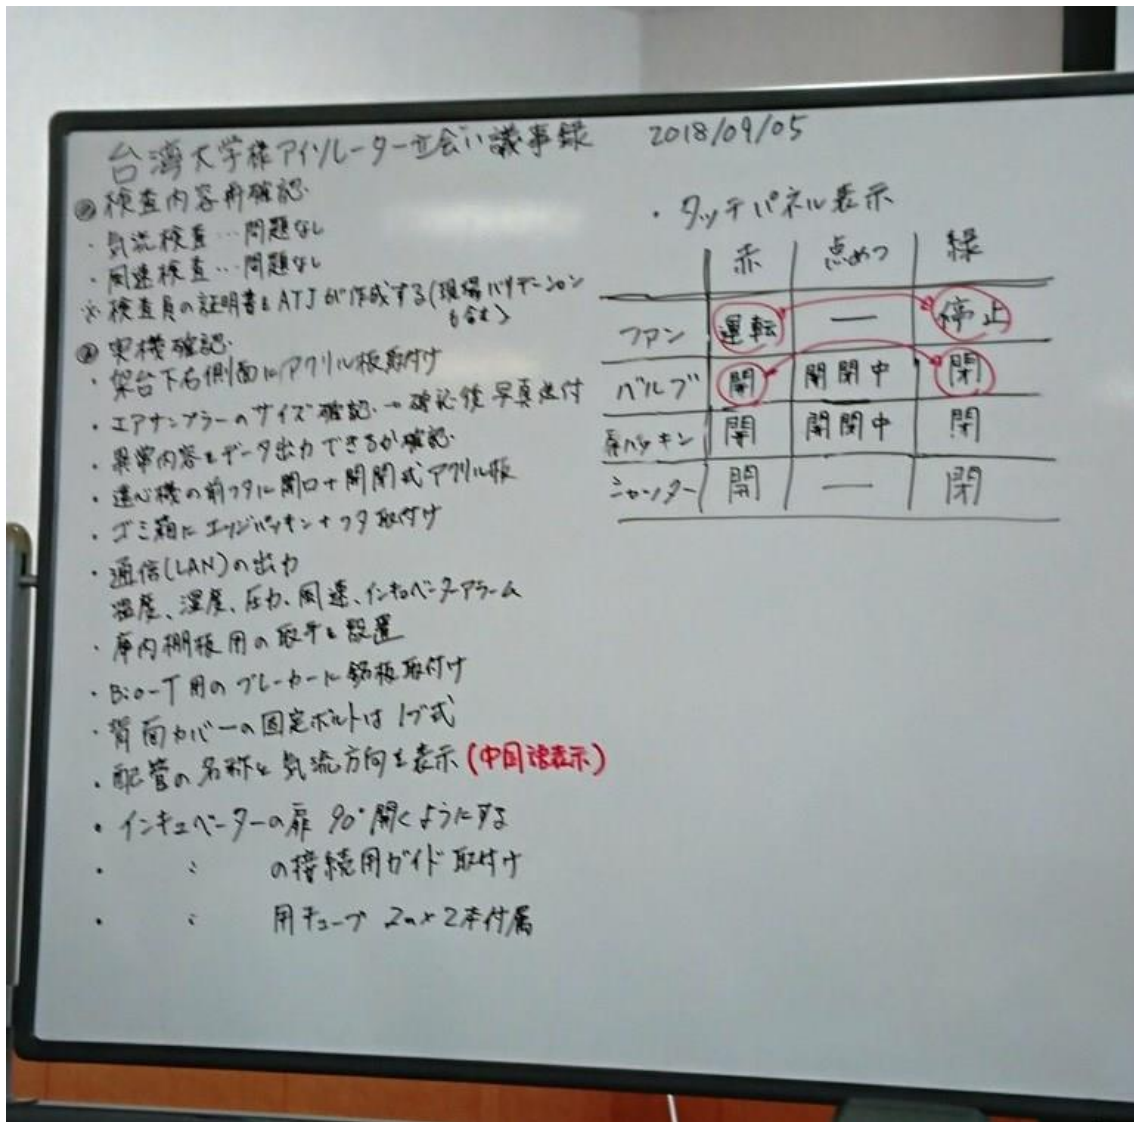 台湾大学様アイソレーター立会い議事録 2018/09/05
検査内容再確認
・気流検査…問題なし
・風速検査…問題なし
※検査員の証明書をATJが作成する(現場バリデーション
も含む)
実機確認
・架台下右側面にアクリル板取付け
・エアサンプラーのサイズ確認→確認後写真送付
・異常内容をデータ出力できるか確認
・遠心機の前フタに開口+開閉式アクリル板
・ゴミ箱にエッジパッキン+フタ取付け
・通信(LAN)の出力
温度、湿度、圧力、風速、インキュベーターアラーム
・庫内棚板用の取手を設置
・Bio-T用のブレーカーに銘板取付け
・背面カバーの固定ボルトは
・配管の名称と気流方向を表示(中国語表示)
・インキュベーターの扉 90°開くようにする
・ 〃 の接続用ガイド取付け
・ 〃 用チューブ 2m×2本付属
・タッチパネル表示
赤 点めつ 緑
ファン 運転 ー 停止
バルブ 開 開閉中 閉
扉パッキン 開 開閉中 閉
シャッター 開 ー 閉